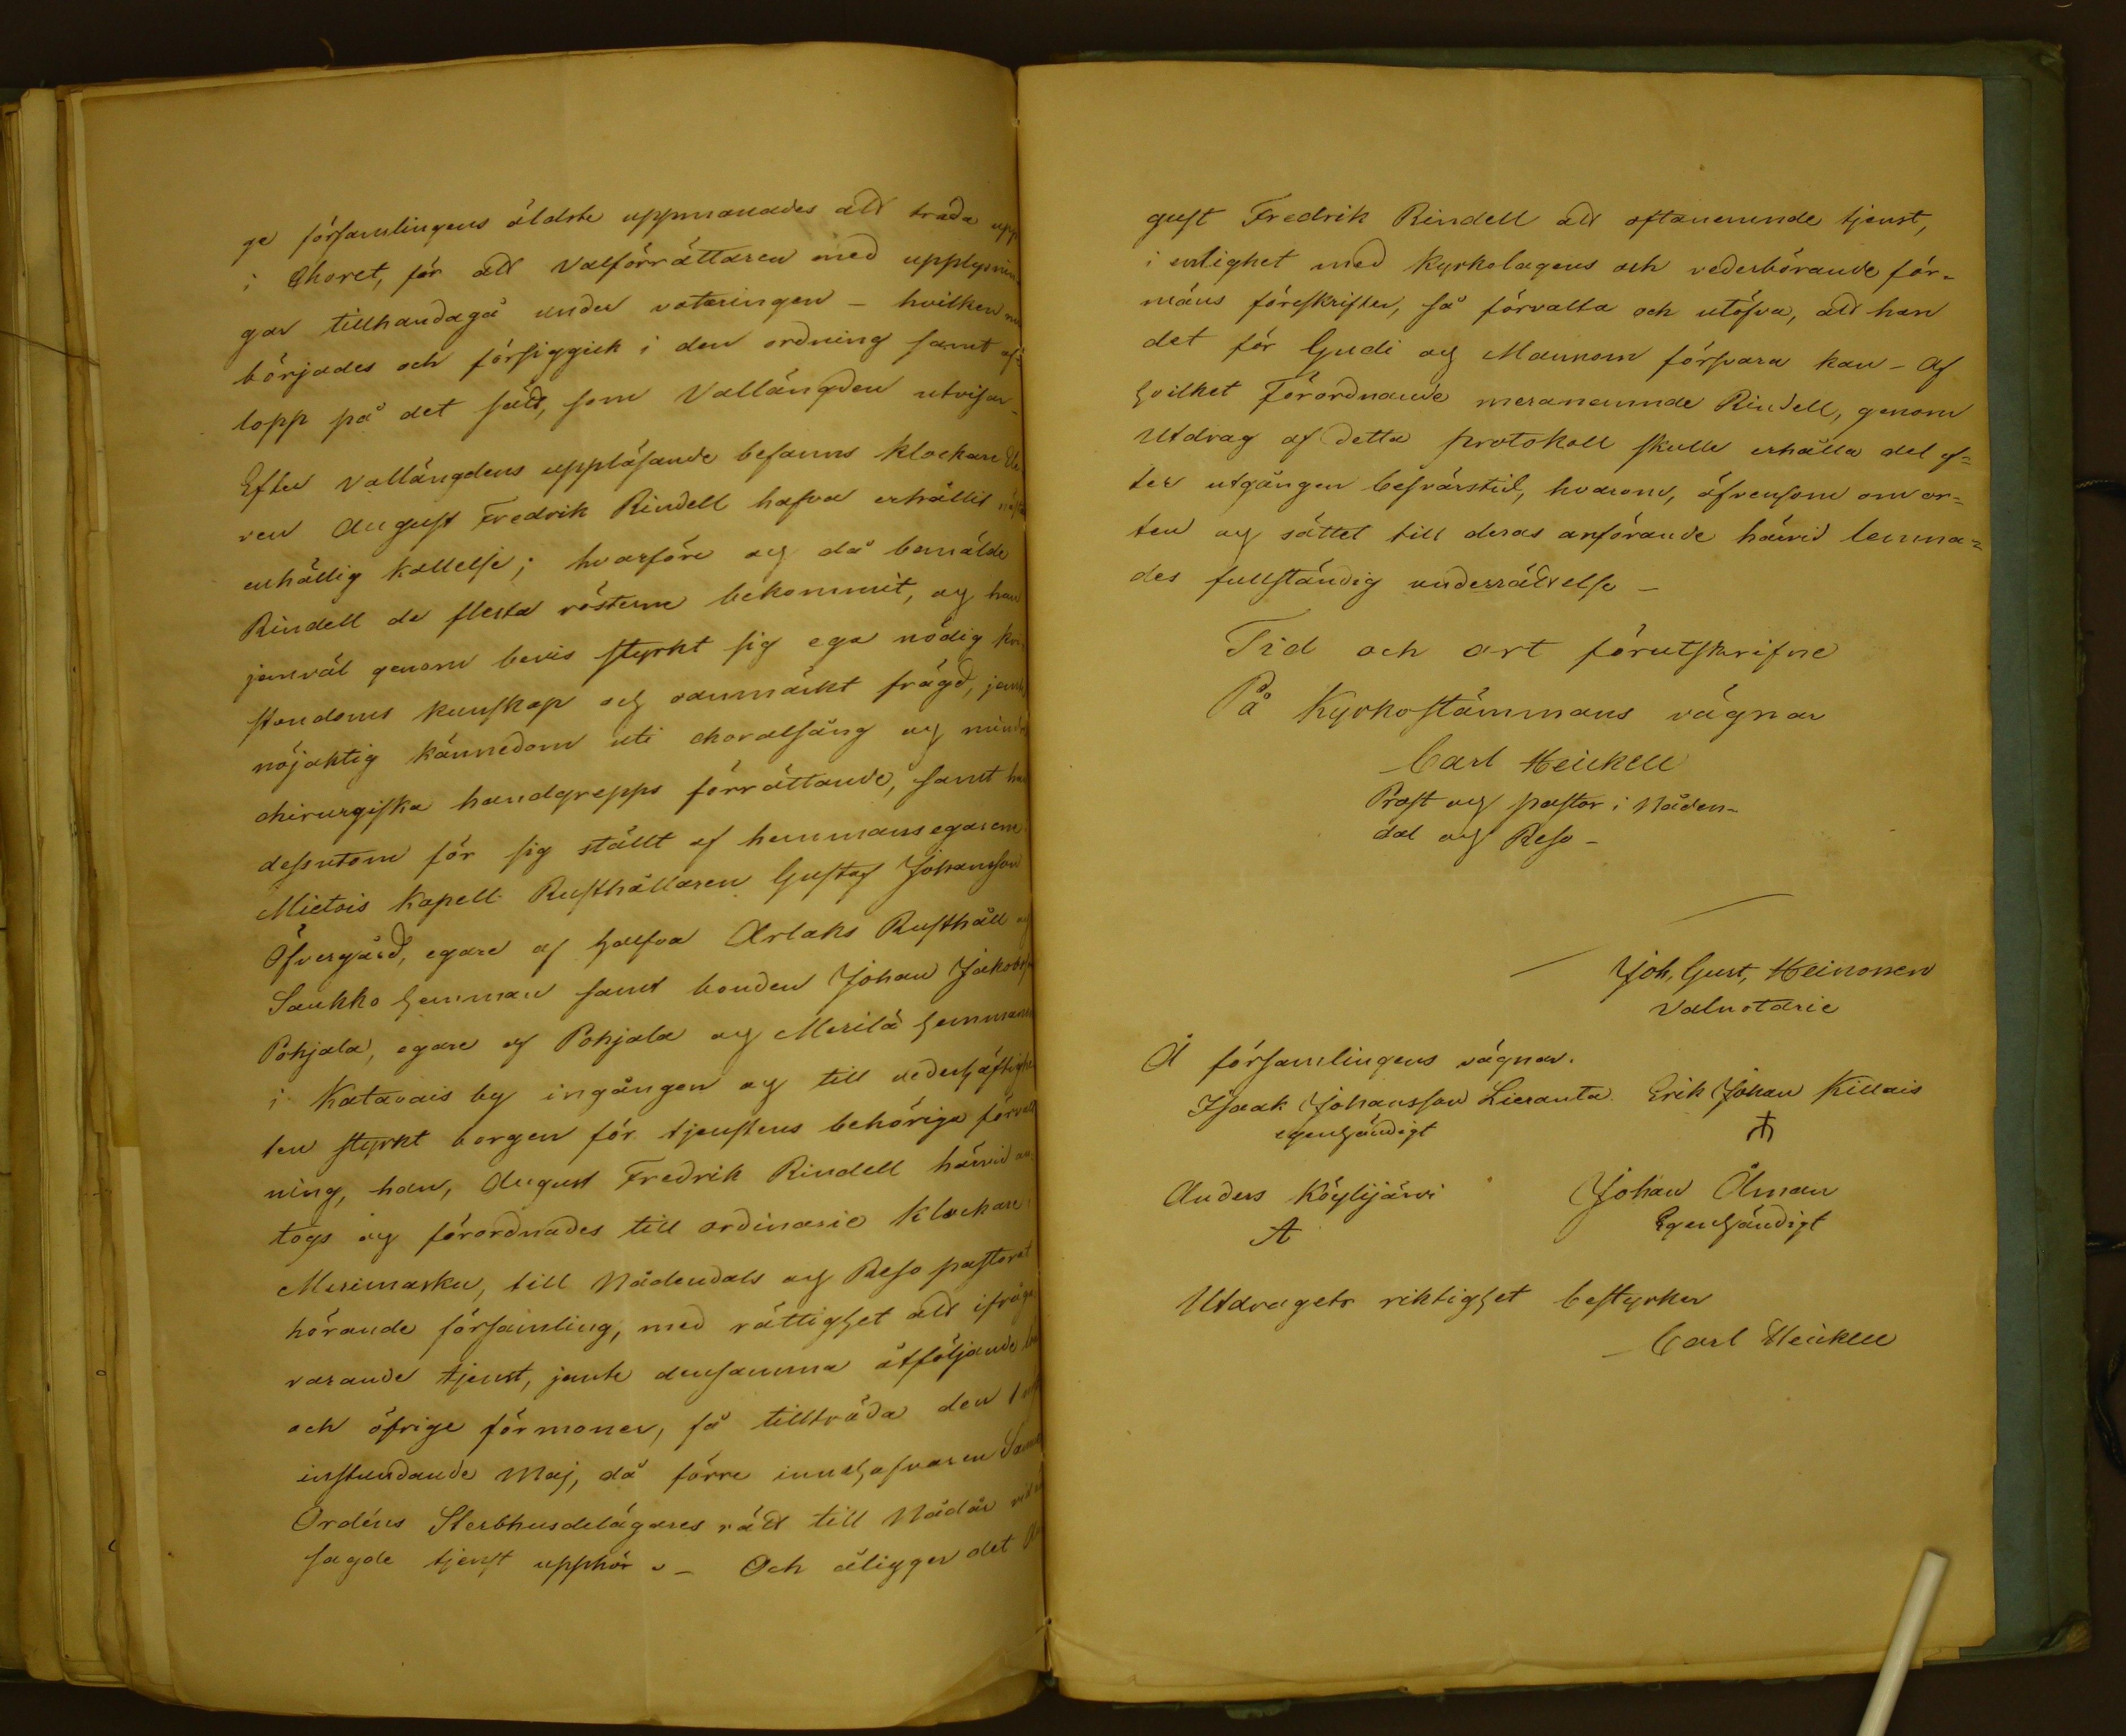 ge församlingens äldste uppmanades att träda upp
i Choret, för att Valförrättaren med upplysnin
gar tillhandagå under voteringen – hvilken nu
börjades och försiggick i den ordning samt af-
lopp på det sätt, som Vallängden utvisar –
Efter Vallängdens uppläsande befanns klockare Ele
ven August Fredrik Rindell hafva erhållit
enhällig kallelse; hvarföre och då bemälde
Rindell de flesta rösterne bekommit, och han
jemväl genom bevis styrkt sig ega nödig kri-
stendoms kunskap och oanmärkt frägd, jemte
nöjaktig kännedom uti choralsång och mindre
chirurgiska handgrepps förrättande, samt han
dessutom för sig ställt af hemmansegarene
Mietois Kapell Rusthållaren Gustaf Johansson
Öfvergård, egare af halfva Arlaks Rusthåll och
Saukko hemman samt bonden Johan Jakobsson
Pohjala, egare af Pohjala och Merilä hemman
i Katavais by ingången och till vederhäftighe
ten styrkt borgen för tjenstens behöriga förvalt
ning, han, August Fredrik Rindell härvid an-
togs och förordnades till ordinarie Klockare i
Merimasku, till Nådendals och Reso pastorat
hörande församling, med rättighet att ifråga
varande tjenst, jemte densamma åtföljande
och öfrige förmoner, få tillträda den 1
instundande Maj, då förre innehafvaren
Ordéns Sterbhusdelägares rätt till Nådår vid
sagde tjenst upphör. – Och åligger det Au
gust Fredrik Rindell att oftanemnde tjenst,
i enlighet med Kyrkolagens och vederbörande för-
mäns föreskrifter, så förvalta och utöfva, att han
det för Gudi och Mannom försvara kan – Af
hvilket Förordnande meranemnde Rindell, genom
Utdrag af detta protokoll skulle erhålla del ef-
ter utgången besvärstid, hvarom, äfvensom om or-
ten och sättet till deras anförande härvid lemna-
des fullständig underrättelse –
Tid och ort förutskrifne
På Kyrkostämmans vägnar
Carl Heickell
Prost och pastor i Nåden-
dal och Reso –
Joh. Gust. Heinonen
Valnotarie
Å församlingens vägnar.
Isaak Johansson Lieranta Erik Johan Killais
egenhändigt
Anders Köylijärvi Johan Öman
A Egenhändigt
Utdragets riktighet bestyrker
Carl Heickell